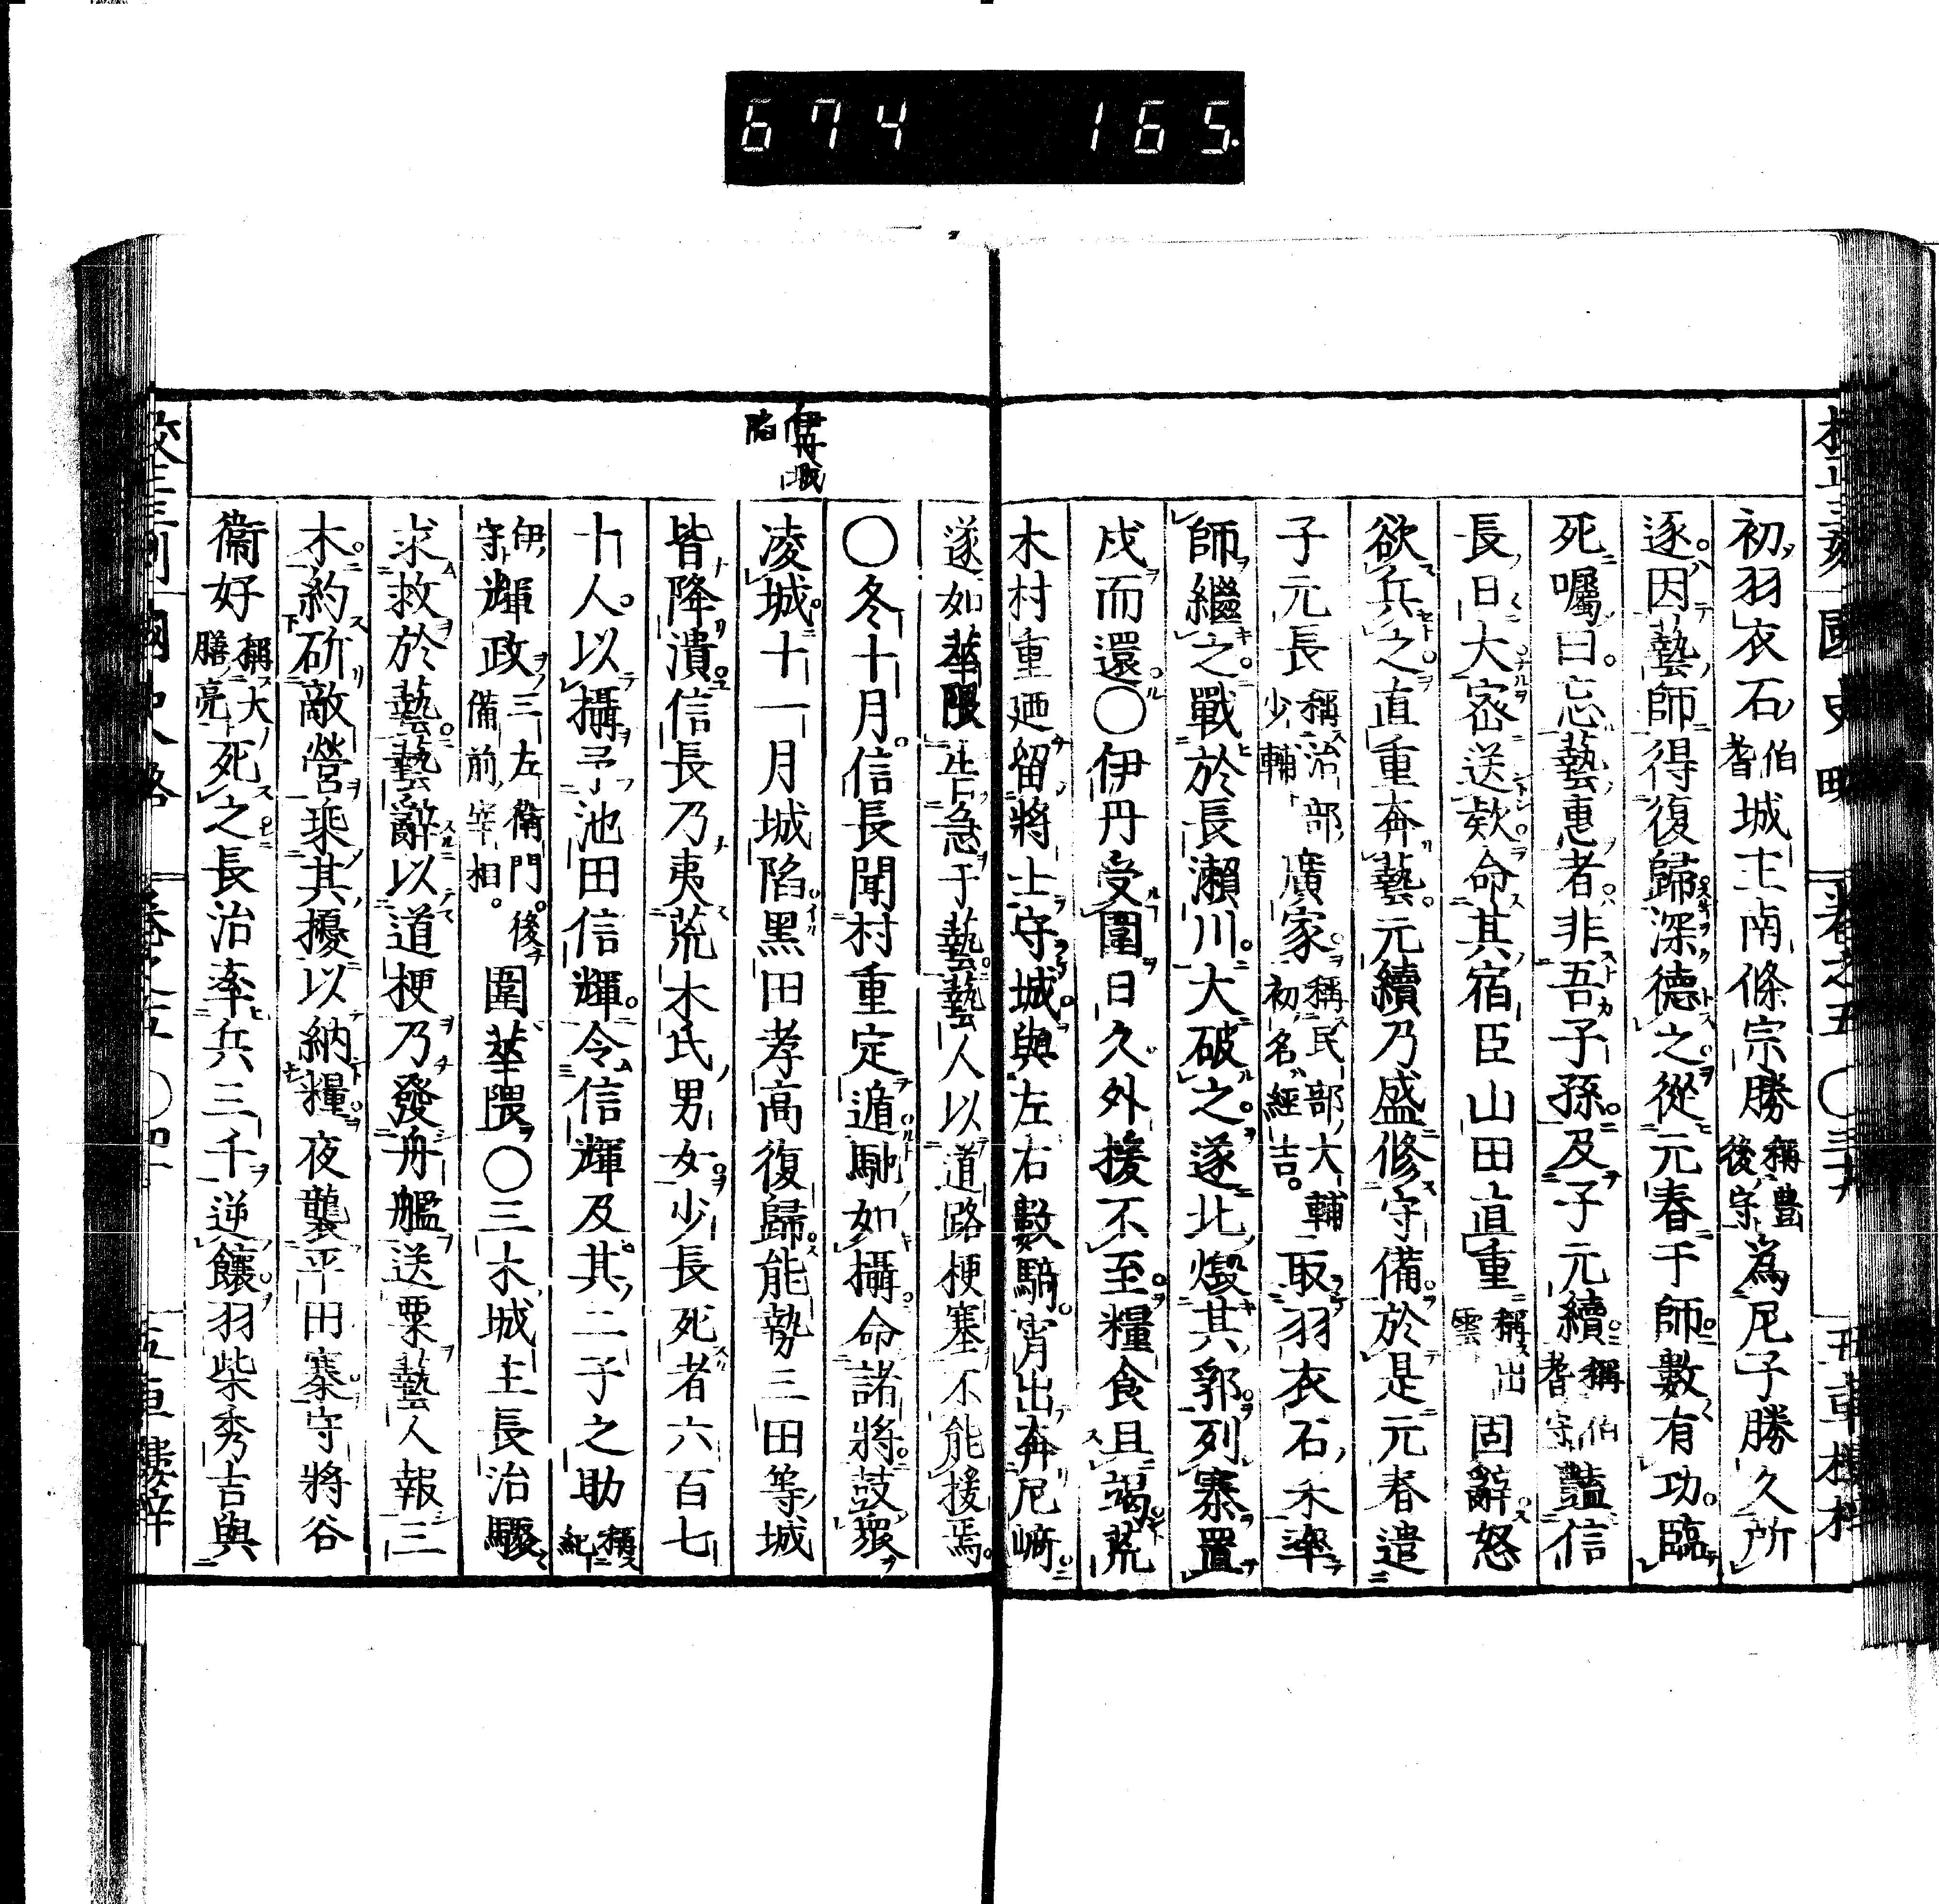 674 165.
國史略 卷之五 〇三十九 五車樓梓
初羽衣石伯耆城主南條宗勝稱豊後守爲尼子勝久所
逐因藝師得復歸深德之從元春于師數有功臨
死囑曰忘藝惠者非吾子孫及子元續稱伯耆守豔信
長日大密送欵命其宿臣山田直重稱出雲固辭怒
欲兵之直重奔藝元續乃盛修守備於是元春遣
子元長稱治部少輔廣家稱民部大輔初名經吉。取羽衣石未率
師繼之戰於長瀨川大破之遂北燬其郭列寨置
戍而還〇伊丹受圍日久外援不至糧食且竭荒
木村重廼留將士守城與左右數騎宵出奔尼崎
遂如華隈告急于藝藝人以道路梗塞不能援焉。
〇冬十月信長聞村重定遁馳如攝命諸將鼓衆
伊丹城陷
凌城十一月城陷黑田孝高復歸能勢三田等城
皆降潰信長乃夷荒木氏男女少長死者六百七
十人以攝予池田信輝令信輝及其二子之助稱紀
伊守輝政三左衛門後備前宰相。圍華隈〇三木城主長治驟
求救於藝藝辭以道梗乃發舟艦送粟藝人報三
木約斫敵營乘其擾以納糧夜襲平田寨守將谷
衞好稱大膳亮死之長治率兵三千逆饟羽柴秀吉與